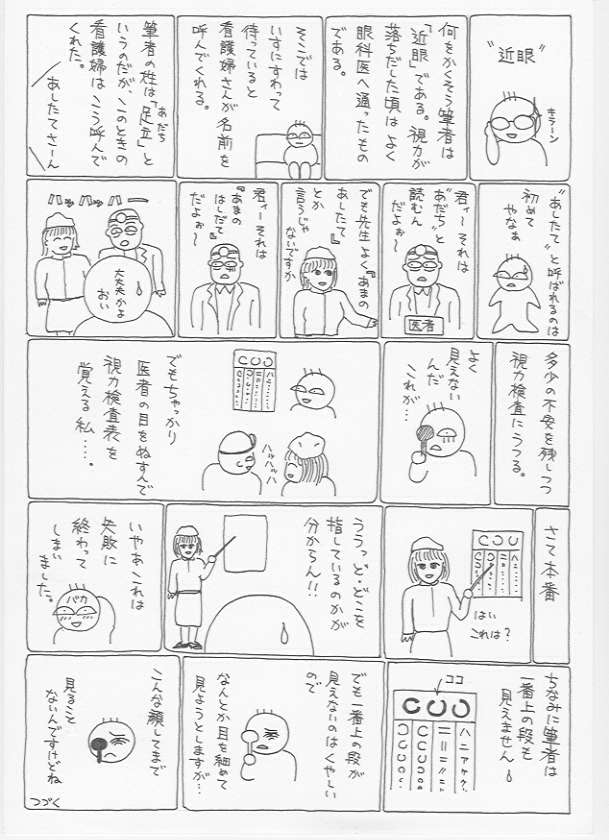 〝近眼〟
キラーン
何をかくそう筆者は
「近眼」である。視力が
落ちだした頃はよく
眼科医へ通ったもの
である。
そこでは
いすにすわって
待っていると
看護婦さんが名前を
呼んでくれる。
筆者の姓は「足立」と
あだち
いうのだが、このときの
看護婦はこう呼んで
くれた。
あしたてさーん
〝あしたて〟と呼ばれるのは
初めて
やなぁ
君ィー それは
〝あだち〟と
読むん
だよぉ〜
医者
でも先生よく『あまの
あしたて』
とか
言うじゃ
ないですか
君ィー それは
『あまの
はしだて』
だよぉ〜
ハッハッハー
大丈夫かよ
おい
多少の不安を残しつつ
視力検査にうつる。
よく
見えない
んだ
これが…
ハッハッハ
でもちゃっかり
医者の目をぬすんで
視力検査表を
覚える私…。
さて本番
はい
これは?
ううっ、ど・どこを
指しているのかが
分からん!!
いやあこれは
失敗に
終わって
しまい
ました。
バカ
ちなみに筆者は
一番上の段も
見えません
ココ
でも一番上の段が
見えないのはくやしい
ので
なんとか目を細めて
見ようとしますが…
こんな顔してまで
見ること
ないんですけどね
つづく